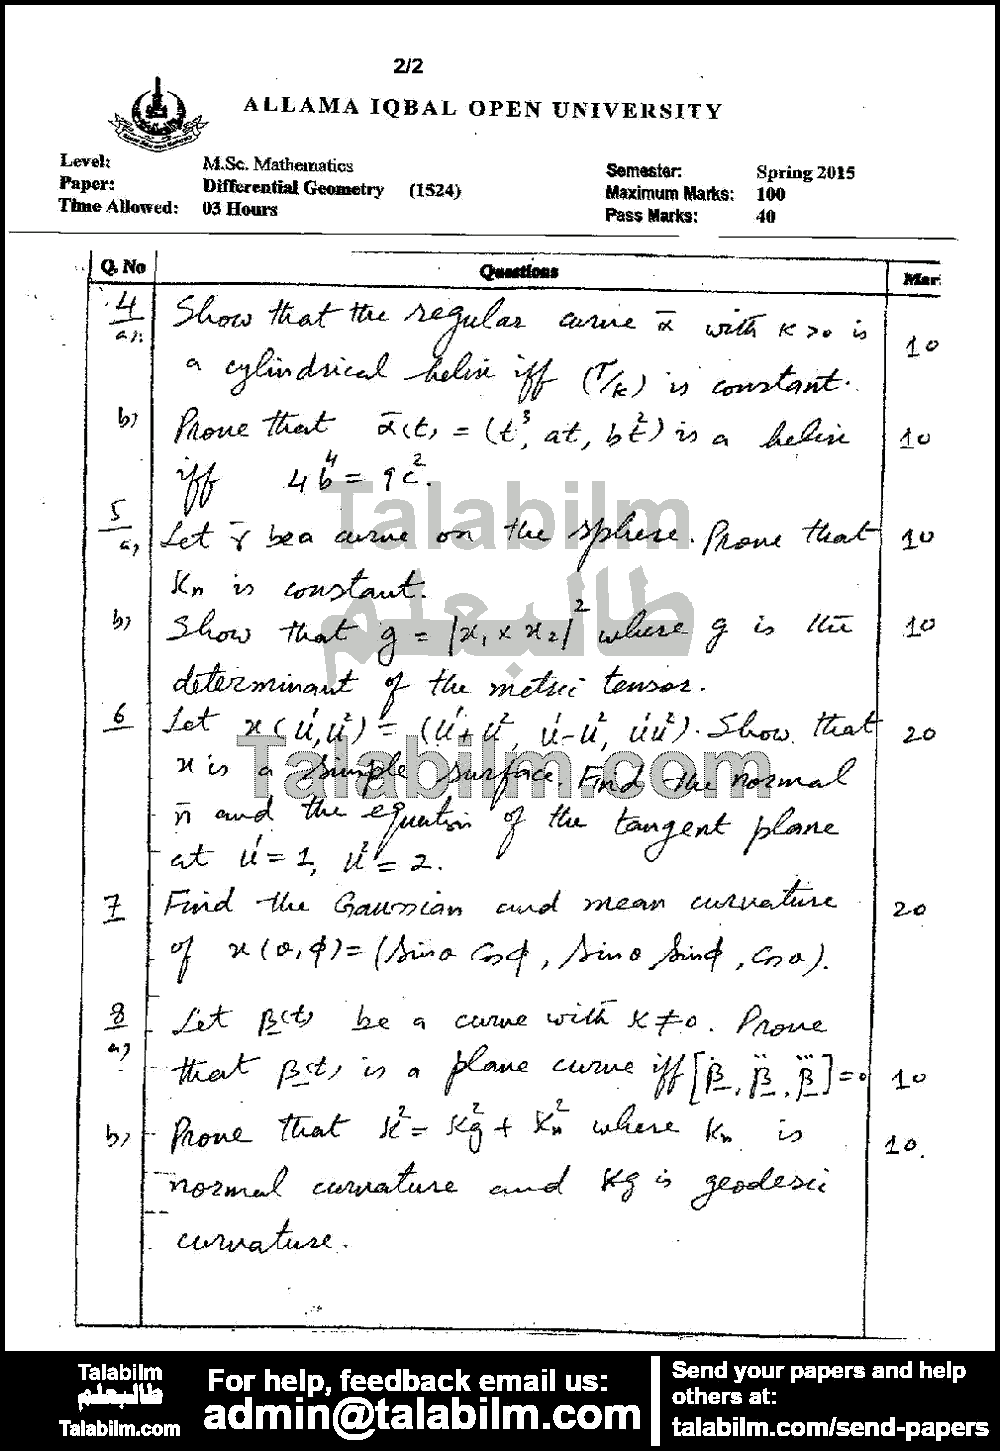 2/2
ALLAMA IQBAL OPEN UNIVERSITY
Level: M.Sc. Mathematics Semester: Spring 2015
Paper: Differential Geometry (1524) Maximum Marks: 100
Time Allowed: 03 Hours Pass Marks: 40
Q. No Questions Mar
4 Show that the regular curve ᾱ with κ>0 is
a): a cylindrical helix iff (τ/κ) is constant. 10
b) Prove that ᾱ(t) = (t³, at, bt²) is a helix 10
iff 4b⁴ = 9c².
5 a) Let γ̄ be a curve on the sphere. Prove that 10
κn is constant.
b) Show that g = |x₁ × x₂|² where g is the 10
determinant of the metric tensor.
6 Let x(u¹, u²) = (u¹+u², u¹-u², u¹u²). Show that 20
x is a simple surface. Find the normal
n̄ and the equation of the tangent plane
at u¹ = 1, u² = 2.
7 Find the Gaussian and mean curvature 20
of x(θ, φ) = (Sinθ Cosφ, Sinθ Sinφ, Cosθ).
8 Let β(t) be a curve with κ≠0. Prove
a) that β(t) is a plane curve iff [β̇, β̈, β⃛] = 0 10
b) Prove that κ² = κg² + κn² where κn is 10.
normal curvature and κg is geodesic
curvature.
Talabilm
طالبعلم
Talabilm.com
Talabilm
طالبعلم
Talabilm.com
For help, feedback email us:
admin@talabilm.com
Send your papers and help
others at:
talabilm.com/send-papers